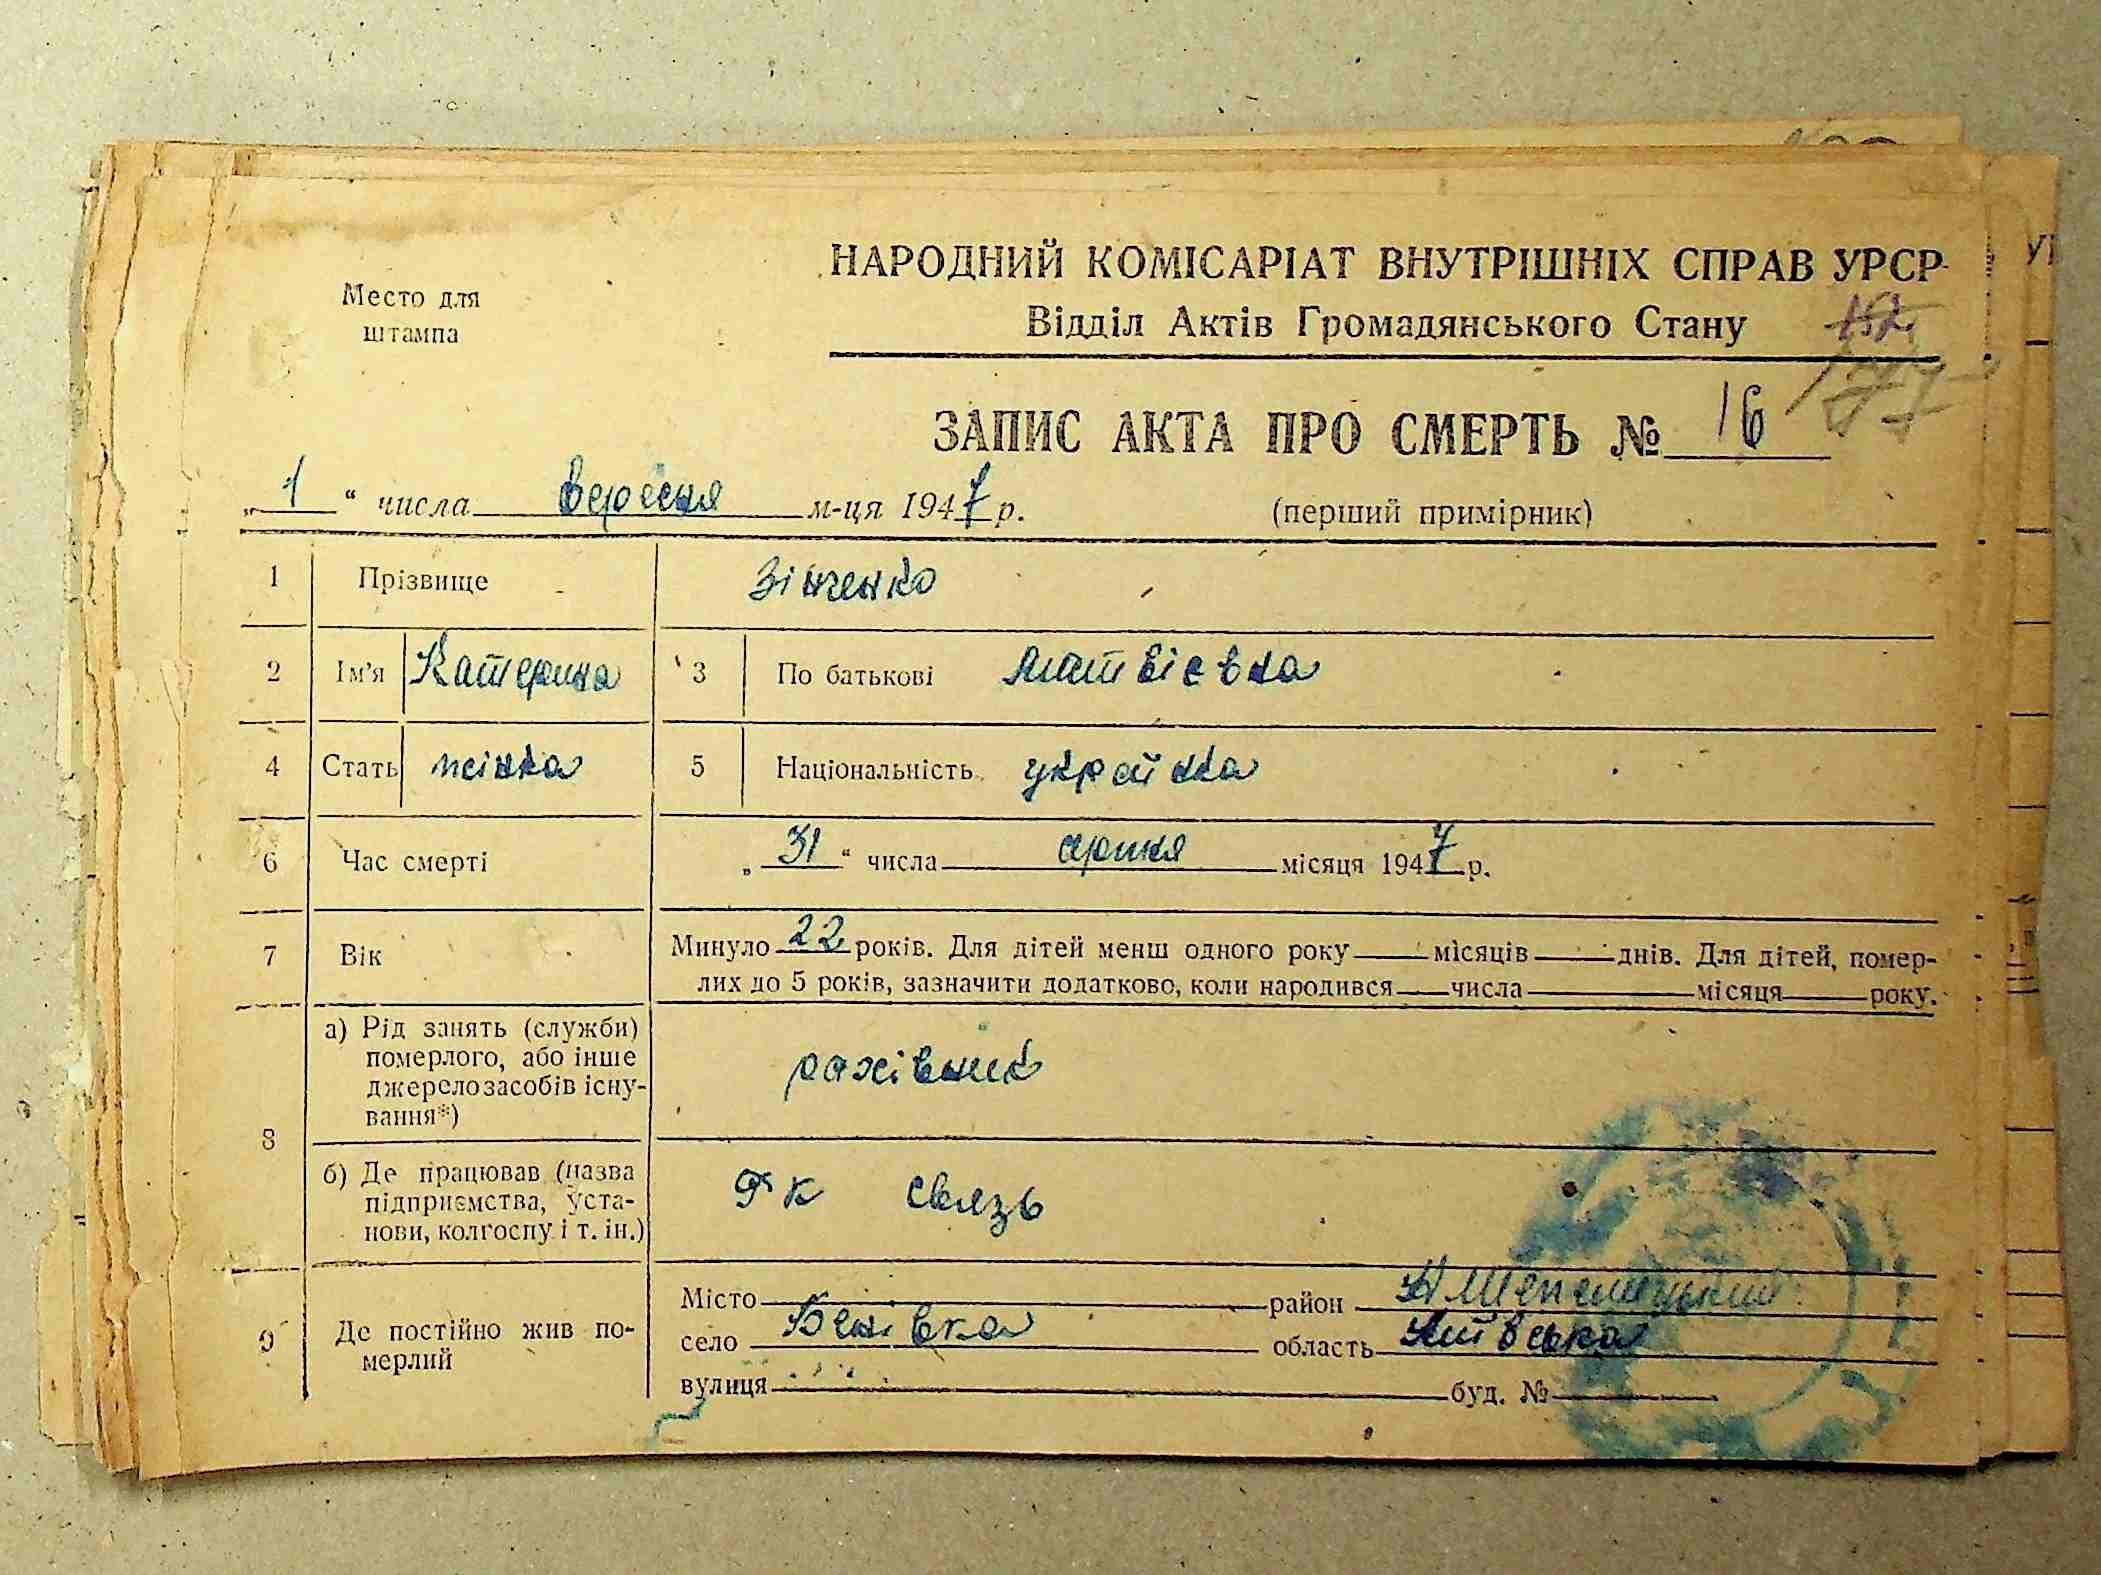 Место для
штампа
НАРОДНИЙ КОМІСАРІАТ ВНУТРІШНІХ СПРАВ УРСР
Відділ Актів Громадянського Стану
ЗАПИС АКТА ПРО СМЕРТЬ № 16
„1“ числа вересня м-ця 1947 р. (перший примірник)
1 Прізвище Зінченко
2 Ім'я Катерина 3 По батькові Матвієвна
4 Стать жінка 5 Національність українка
6 Час смерті „31“ числа серпня місяця 1947 р.
7 Вік Минуло 22 років. Для дітей менш одного року місяців днів. Для дітей, помер-
лих до 5 років, зазначити додатково, коли народився числа місяця року.
8 а) Рід занять (служби)
померлого, або інше
джерело засобів існу-
вання*)
рахівник
б) Де працював (назва
підприємства, уста-
нови, колгоспу і т. ін.)
РК связь
9 Де постійно жив по-
мерлий
Місто район
село область
вулиця буд. №